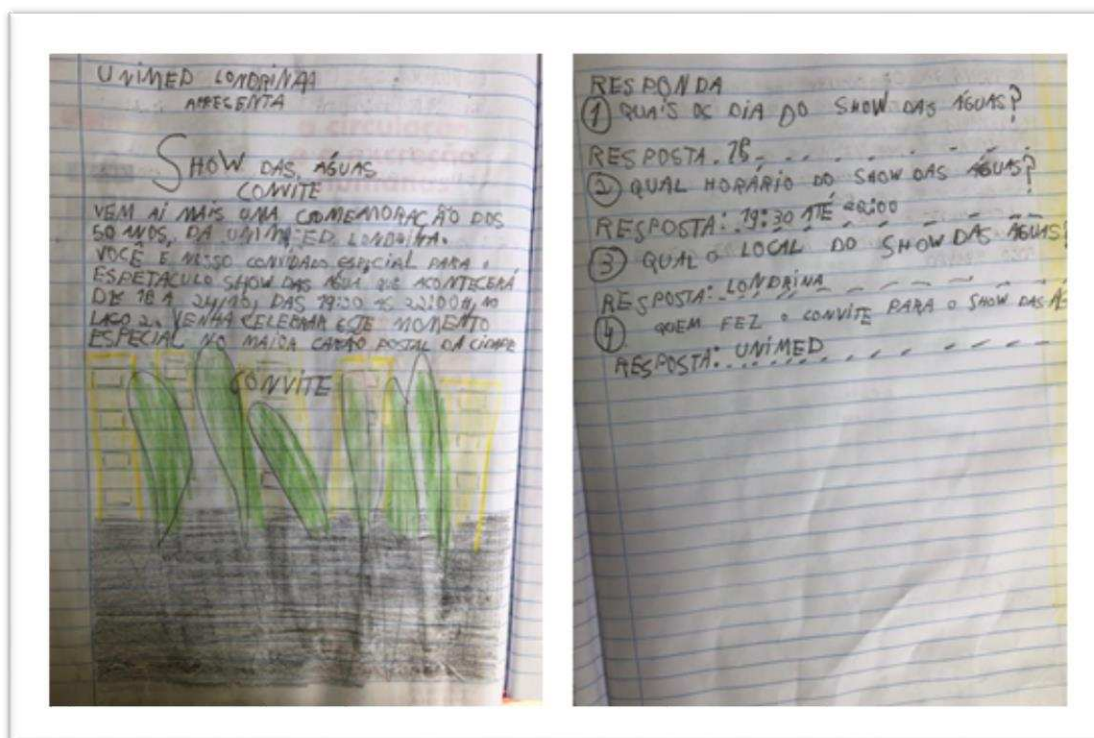 UNIMED LONDRINA
APRESENTA
SHOW DAS ÁGUAS
CONVITE
VEM AI MAIS UMA COMEMORAÇÃO DOS
50 ANOS, DA UNIMED LONDRINA.
VOCÊ E NOSSO CONVIDADO ESPECIAL PARA O
ESPETACULO SHOW DAS ÁGUA QUE ACONTECERÁ
DE 18 A 24/10, DAS 19:30 AS 22:00H, NO
LAGO 2. VENHA CELEBRAR ESTE MOMENTO
ESPECIAL NO MAIOR CARÃO POSTAL DA CIDADE
CONVITE
RESPONDA
1 QUAIS OS DIA DO SHOW DAS ÁGUAS?
RESPOSTA. 18
2 QUAL HORÁRIO DO SHOW DAS ÁGUAS?
RESPOSTA: 19:30 ATÉ
3 QUAL O LOCAL DO SHOW DAS ÁGUAS?
RESPOSTA: LONDRINA
4 QUEM FEZ O CONVITE PARA O SHOW DAS
RESPOSTA: UNIMED